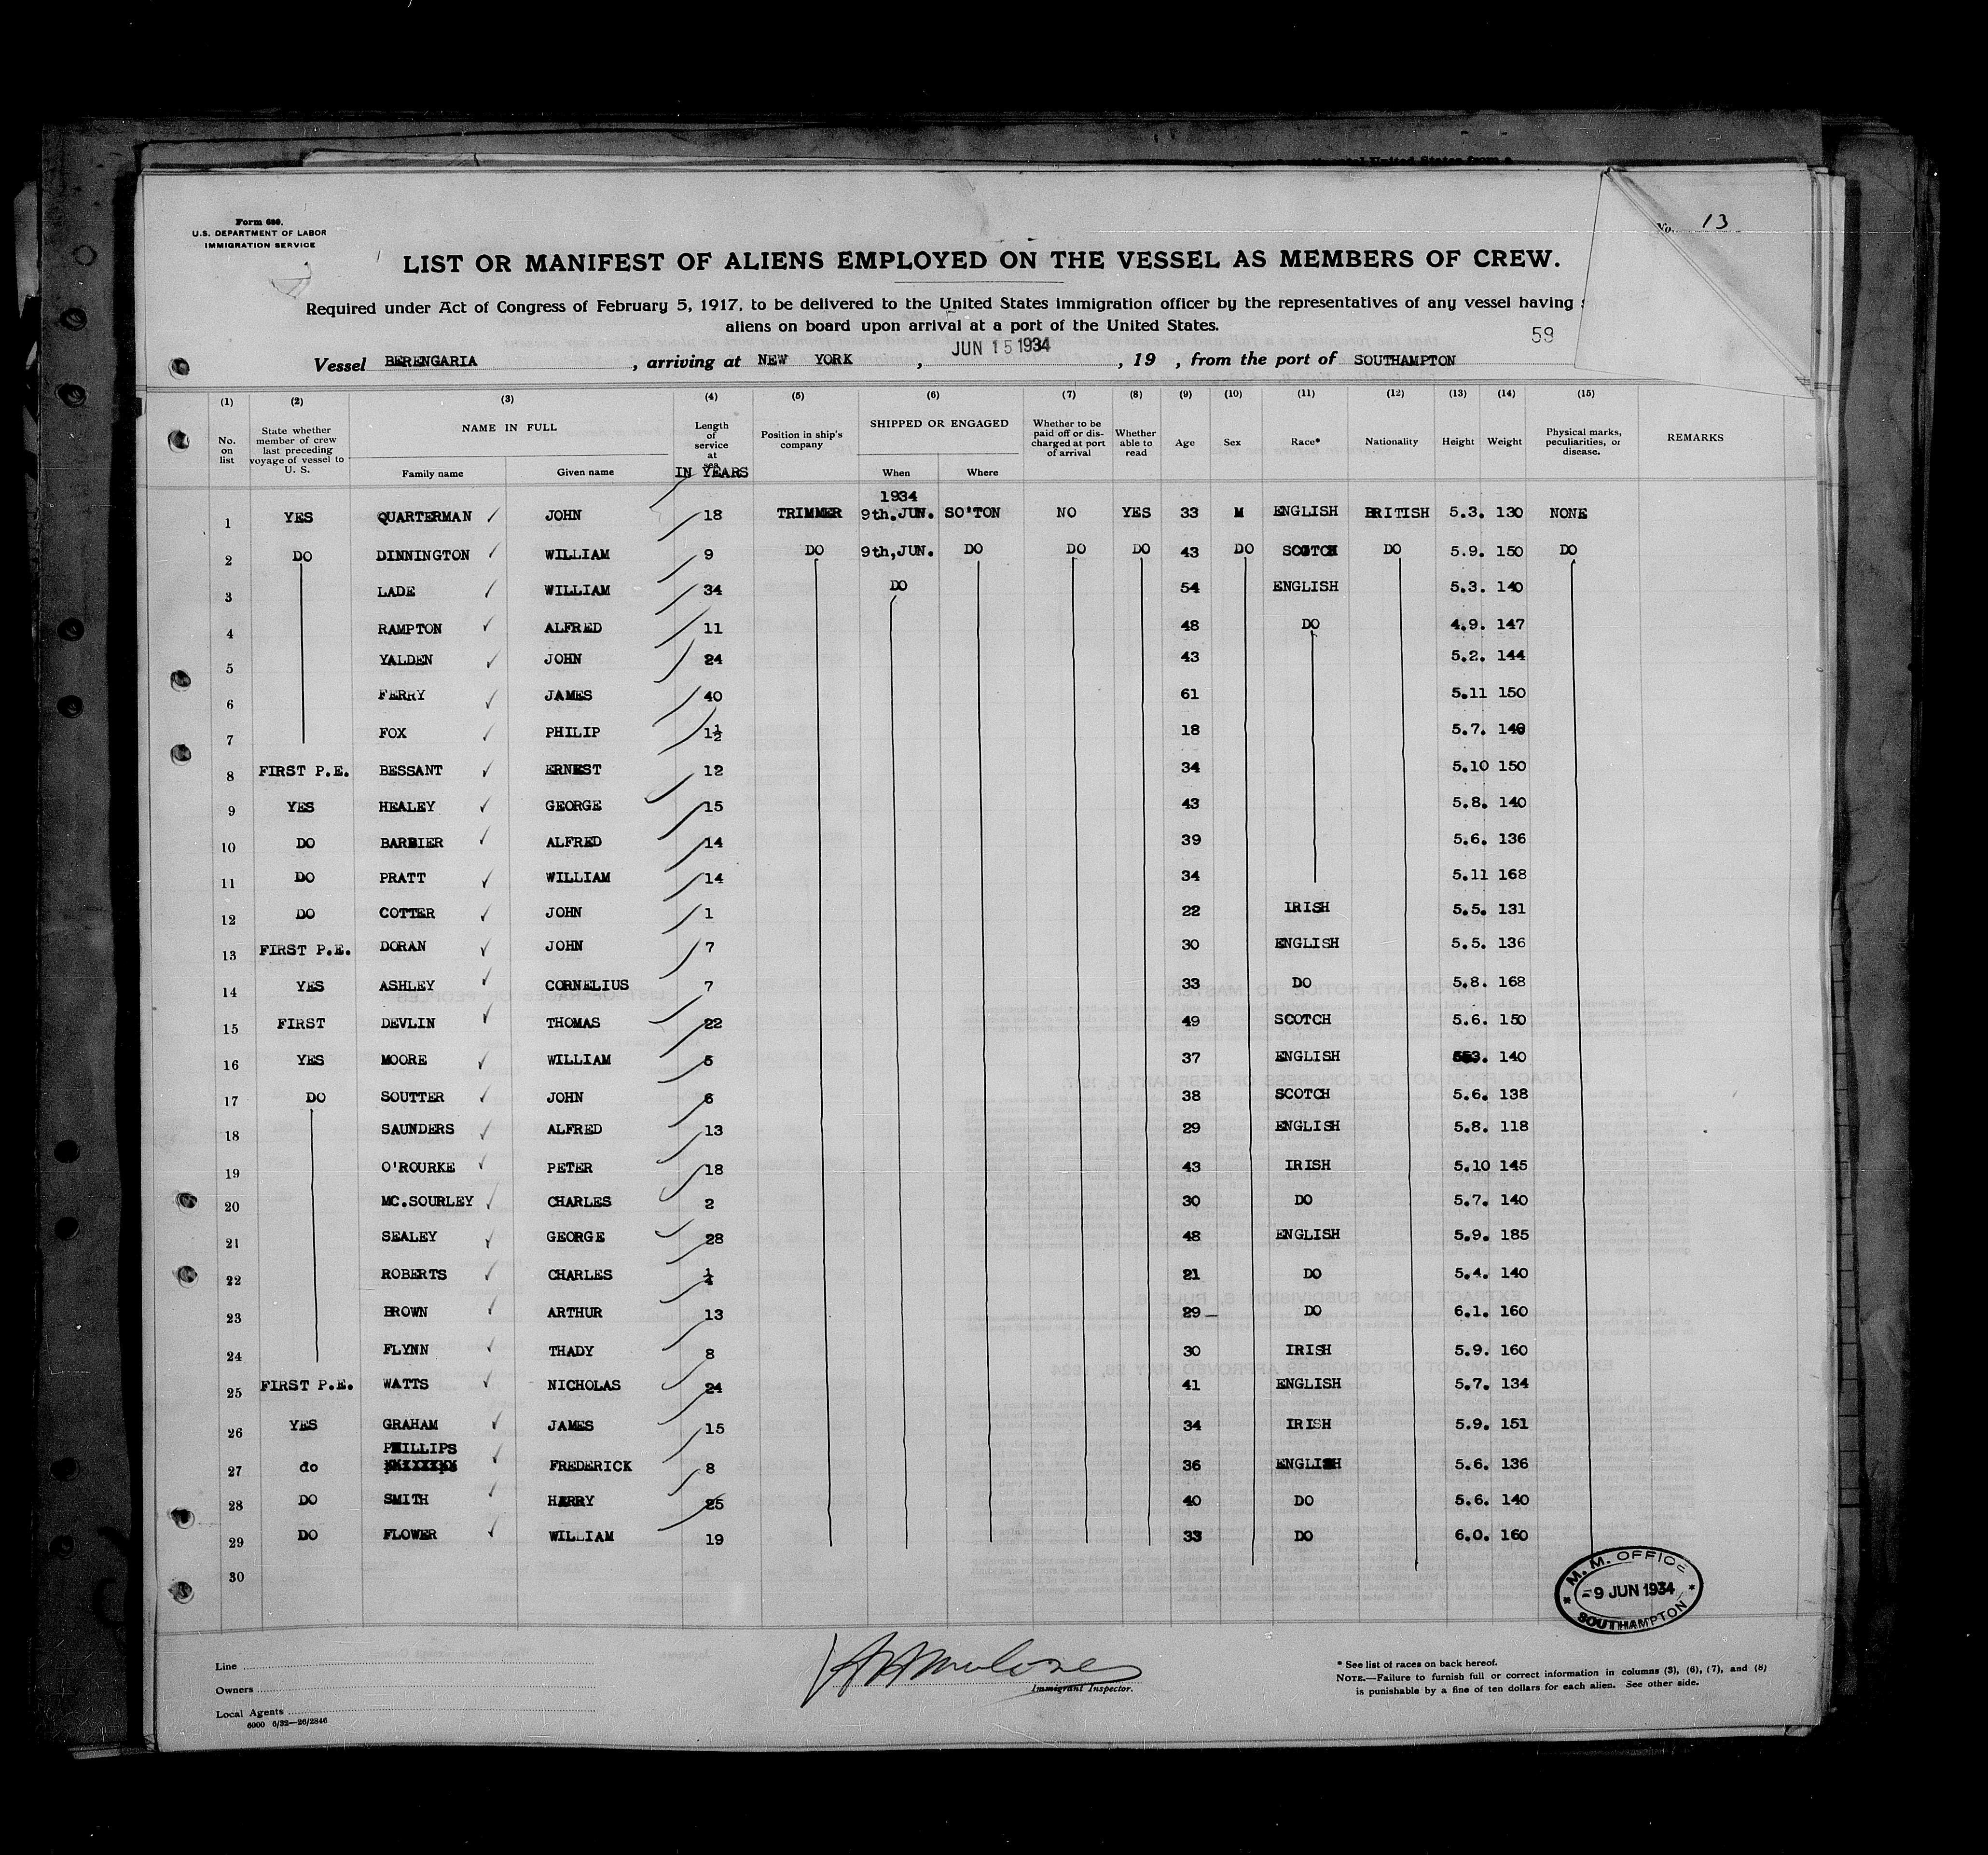 Form 680.
U.S. DEPARTMENT OF LABOR
IMMIGRATION SERVICE
No. 13
LIST OR MANIFEST OF ALIENS EMPLOYED ON THE VESSEL AS MEMBERS OF CREW.
Required under Act of Congress of February 5, 1917, to be delivered to the United States immigration officer by the representatives of any vessel having
aliens on board upon arrival at a port of the United States.
59
Vessel BERENGARIA, arriving at NEW YORK, JUN 15 1934, 19 , from the port of SOUTHAMPTON
(1) (2) (3) (4) (5) (6) (7) (8) (9) (10) (11) (12) (13) (14) (15)
No. on list | State whether member of crew last preceding voyage of vessel to U. S. | NAME IN FULL Family name Given name | Length of service at sea IN YEARS | Position in ship's company | SHIPPED OR ENGAGED When Where | Whether to be paid off or discharged at port of arrival | Whether able to read | Age | Sex | Race* | Nationality | Height | Weight | Physical marks, peculiarities, or disease. | REMARKS
1934
1 YES QUARTERMAN JOHN 18 TRIMMER 9th.JUN. SO'TON NO YES 33 M ENGLISH BRITISH 5.3. 130 NONE
2 DO DINNINGTON WILLIAM 9 DO 9th,JUN. DO DO DO 43 DO SCOTCH DO 5.9. 150 DO
3 LADE WILLIAM 34 DO 54 ENGLISH 5.3. 140
4 RAMPTON ALFRED 11 48 DO 4.9. 147
5 YALDEN JOHN 24 43 5.2. 144
6 FERRY JAMES 40 61 5.11 150
7 FOX PHILIP 1½ 18 5.7. 140
8 FIRST P.E. BESSANT ERNEST 12 34 5.10 150
9 YES HEALEY GEORGE 15 43 5.8. 140
10 DO BARBIER ALFRED 14 39 5.6. 136
11 DO PRATT WILLIAM 14 34 5.11 168
12 DO COTTER JOHN 1 22 IRISH 5.5. 131
13 FIRST P.E. DORAN JOHN 7 30 ENGLISH 5.5. 136
14 YES ASHLEY CORNELIUS 7 33 DO 5.8. 168
15 FIRST DEVLIN THOMAS 22 49 SCOTCH 5.6. 150
16 YES MOORE WILLIAM 5 37 ENGLISH 140
17 DO SOUTTER JOHN 6 38 SCOTCH 5.6. 138
18 SAUNDERS ALFRED 13 29 ENGLISH 5.8. 118
19 O'ROURKE PETER 18 43 IRISH 5.10 145
20 MC.SOURLEY CHARLES 2 30 DO 5.7. 140
21 SEALEY GEORGE 28 48 ENGLISH 5.9. 185
22 ROBERTS CHARLES ¼ 21 DO 5.4. 140
23 BROWN ARTHUR 13 29 DO 6.1. 160
24 FLYNN THADY 8 30 IRISH 5.9. 160
25 FIRST P.E. WATTS NICHOLAS 24 41 ENGLISH 5.7. 134
26 YES GRAHAM JAMES 15 34 IRISH 5.9. 151
27 do PHILLIPS FREDERICK 8 36 ENGLISH 5.6. 136
28 DO SMITH HARRY 25 40 DO 5.6. 140
29 DO FLOWER WILLIAM 19 33 DO 6.0. 160
30
M. M. OFFICE
9 JUN 1934
SOUTHAMPTON
Line
Owners
Local Agents
6000 6/32—26/2846
Immigrant Inspector.
* See list of races on back hereof.
NOTE.—Failure to furnish full or correct information in columns (3), (6), (7), and (8)
is punishable by a fine of ten dollars for each alien. See other side.